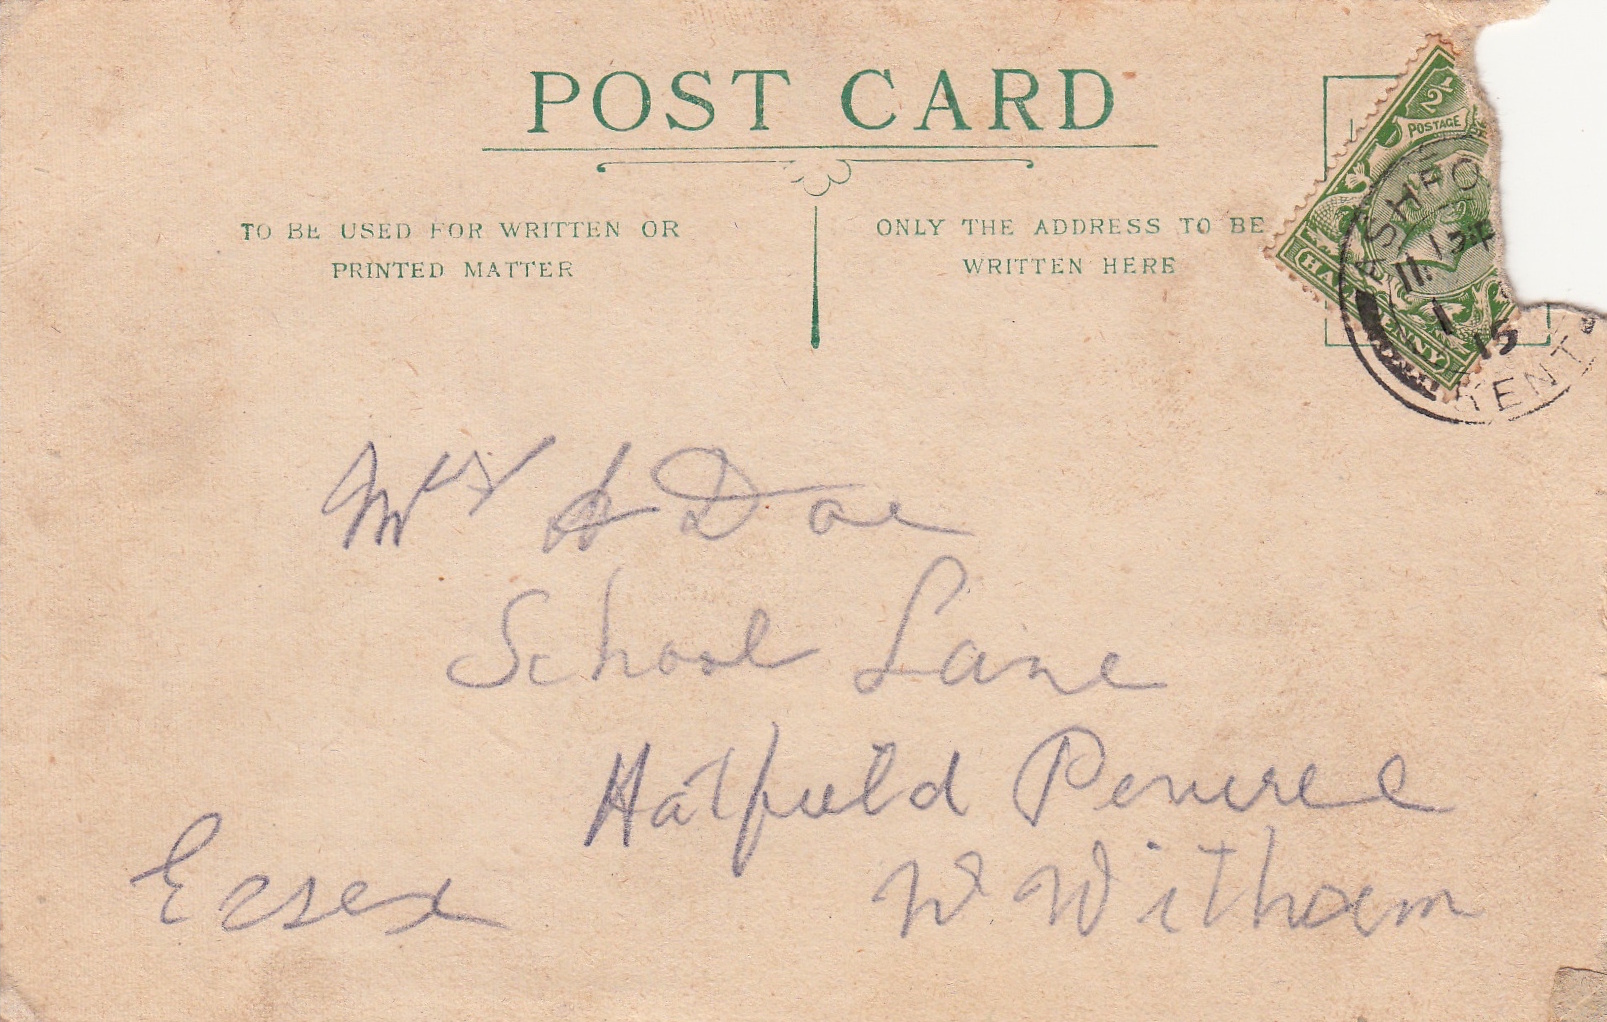 POST CARD
TO BE USED FOR WRITTEN OR
PRINTED MATTER
ONLY THE ADDRESS TO BE
WRITTEN HERE
1/2
POSTAGE
ASHFO
11. 15
1 15
KENT
Mrs A Doe
School Lane
Hatfield Peverel
W Witham
Essex